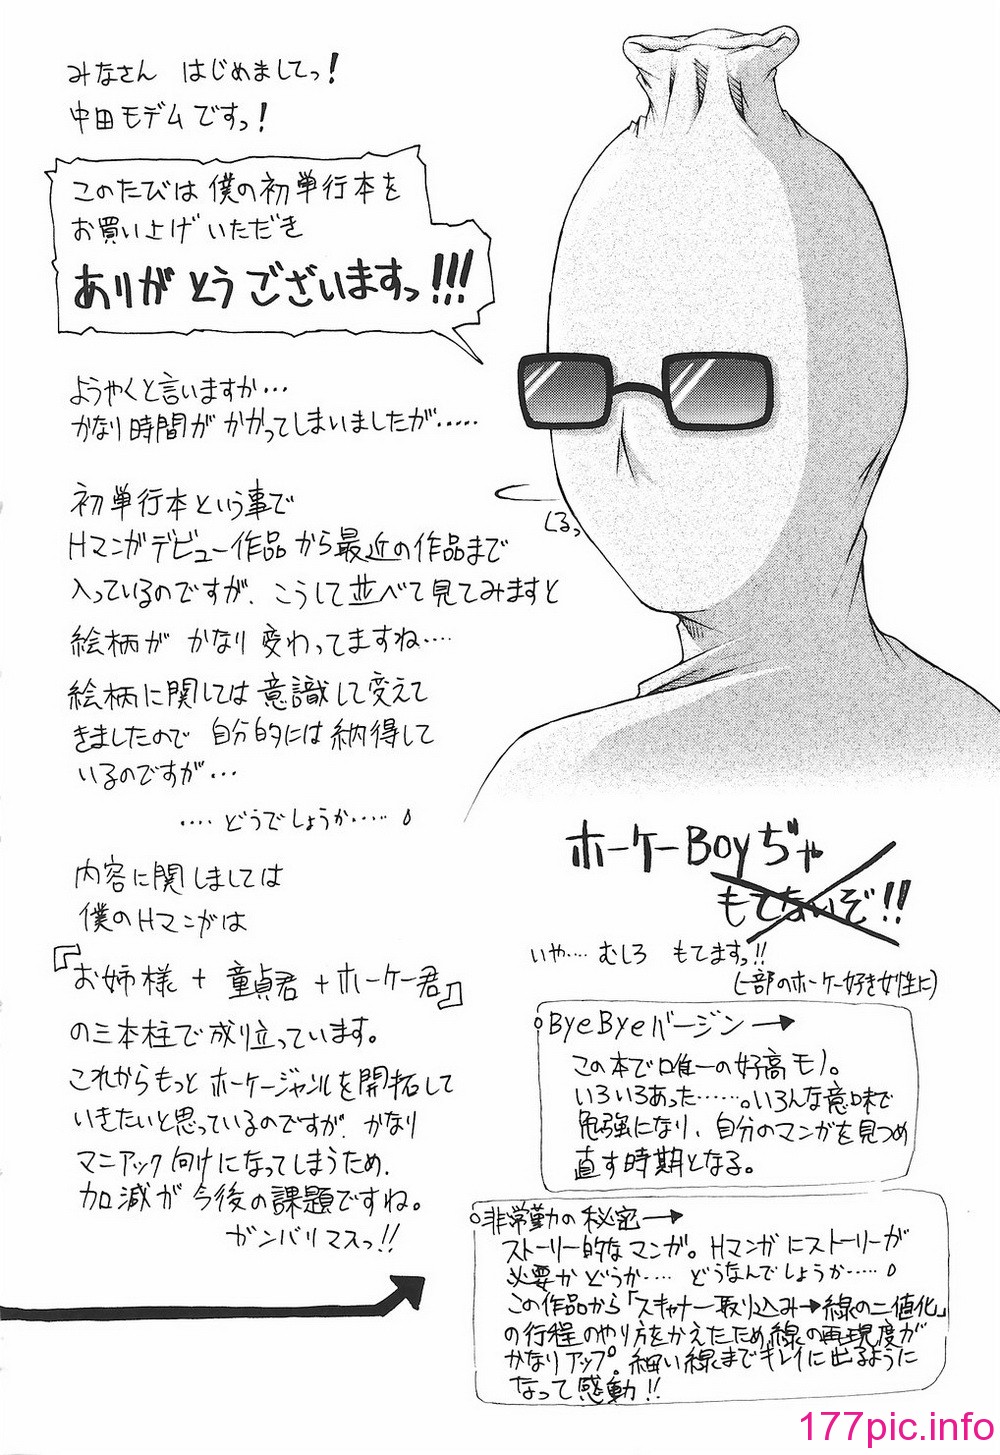 みなさん はじめましてっ！
中田モデムですっ！
このたびは僕の初単行本を
お買い上げいただき
ありがとうございますっ!!!
ようやくと言いますか…
かなり時間がかかってしまいましたが……
初単行本という事で
Hマンガデビュー作品から最近の作品まで
入っているのですが、こうして並べて見てみますと
絵柄がかなり変わってますね…
絵柄に関しては意識して変えて
きましたので自分的には納得して
いるのですが…
…どうでしょうか……
内容に関しましては
僕のHマンガは
『お姉様＋童貞君＋ホーケー君』
の三本柱で成り立っています。
これからもっとホーケージャンルを開拓して
いきたいと思っているのですが、かなり
マニアック向けになってしまうため、
加減が今後の課題ですね。
ガンバリマスっ!!
くるっ
ホーケーBoyぢゃ
もてないぞ!!
いや…むしろ もてますっ!!
(一部のホーケー好き女性に)
ByeByeバージン→
この本で唯一の好高モノ。
いろいろあった……。いろんな意味で
勉強になり、自分のマンガを見つめ
直す時期となる。
非常勤の秘密→
ストーリー的なマンガ。Hマンガにストーリーが
必要かどうか…どうなんでしょうか……
この作品から「スキャナー取り込み→線の二値化」
の行程のやり方をかえたため、線の再現度が
かなりアップ。細い線までキレイに出るように
なって感動!!
177pic.info